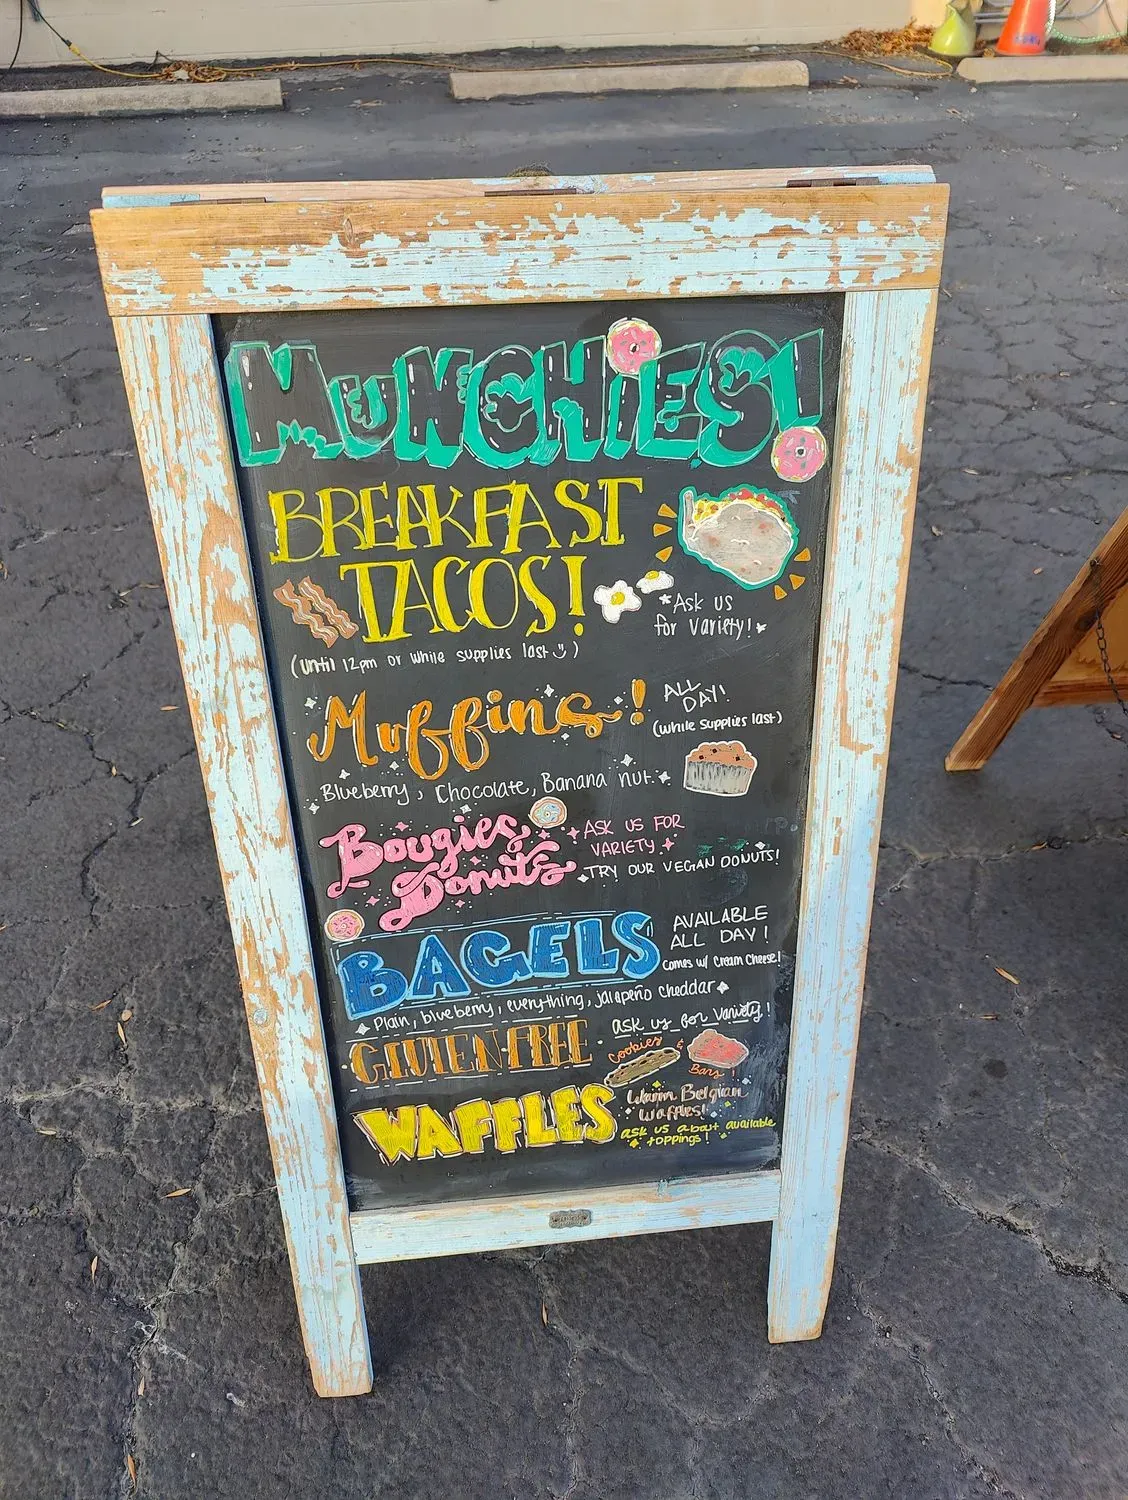 MUNCHIES!
BREAKFAST
TACOS!
*Ask us
for variety!*
(until 12pm or while supplies last)
Muffins!
ALL
DAY!
(while supplies last)
Blueberry, Chocolate, Banana nut
Bougies
Donuts
ASK US FOR
VARIETY
TRY OUR VEGAN DONUTS!
BAGELS
AVAILABLE
ALL DAY!
Comes w/ Cream Cheese!
Plain, blueberry, everything, jalapeño cheddar
GLUTEN-FREE
ask us for variety!
Cookies &
Bars!
WAFFLES
Warm Belgian
Waffles!
ask us about available
toppings!